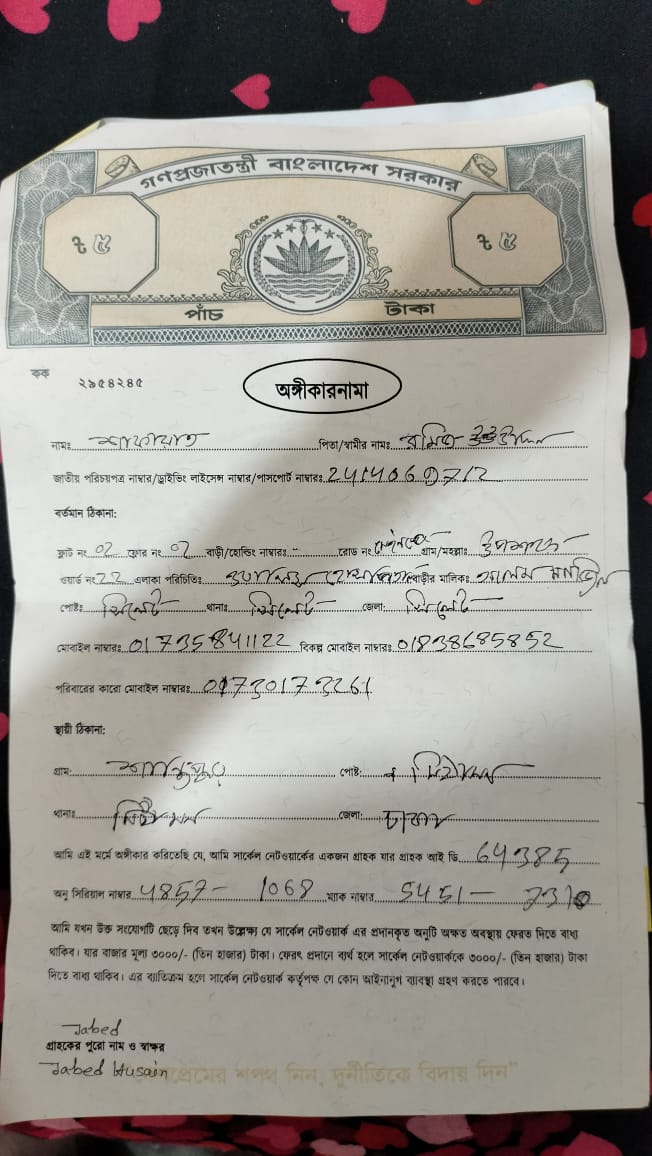 গণপ্রজাতন্ত্রী বাংলাদেশ সরকার
৳ ৫ ৳ ৫
পাঁচ টাকা
কক ২৯৫৪২৪৫
অঙ্গীকারনামা
নামঃ পিতা/স্বামীর নামঃ
জাতীয় পরিচয়পত্র নাম্বার/ড্রাইভিং লাইসেন্স নাম্বার/পাসপোর্ট নাম্বারঃ
বর্তমান ঠিকানা:
ফ্লাট নং 02 ফ্লোর নং 02 বাড়ী/হোল্ডিং নাম্বারঃ রোড নং গ্রাম/মহল্লাঃ
ওয়ার্ড নং 22 এলাকা পরিচিতিঃ বাড়ীর মালিকঃ
পোষ্টঃ সিলেট থানাঃ সিলেট জেলা: সিলেট
মোবাইল নাম্বারঃ 01735841122 বিকল্প মোবাইল নাম্বারঃ 01838685852
পরিবারের কারো মোবাইল নাম্বারঃ 01730173261
স্থায়ী ঠিকানা:
গ্রাম: পোষ্ট:
থানাঃ জেলা:
আমি এই মর্মে অঙ্গীকার করিতেছি যে, আমি সার্কেল নেটওয়ার্কের একজন গ্রাহক যার গ্রাহক আই ডি 64385
অনু সিরিয়াল নাম্বার 4857- 1068 ম্যাক নাম্বার 5451-
আমি যখন উক্ত সংযোগটি ছেড়ে দিব তখন উল্লেক্ষ্য যে সার্কেল নেটওয়ার্ক এর প্রদানকৃত অনুটি অক্ষত অবস্থায় ফেরত দিতে বাধ্য
থাকিব। যার বাজার মূল্য ৩০০০/- (তিন হাজার) টাকা। ফেরৎ প্রদানে ব্যর্থ হলে সার্কেল নেটওয়ার্ককে ৩০০০/- (তিন হাজার) টাকা
দিতে বাধ্য থাকিব। এর ব্যতিক্রম হলে সার্কেল নেটওয়ার্ক কর্তৃপক্ষ যে কোন আইনানুগ ব্যাবস্থা গ্রহণ করতে পারবে।
Jabed
গ্রাহকের পুরো নাম ও স্বাক্ষর
Jabed Husain
শপথ নিন, দুর্নীতিকে বিদায় দিন"